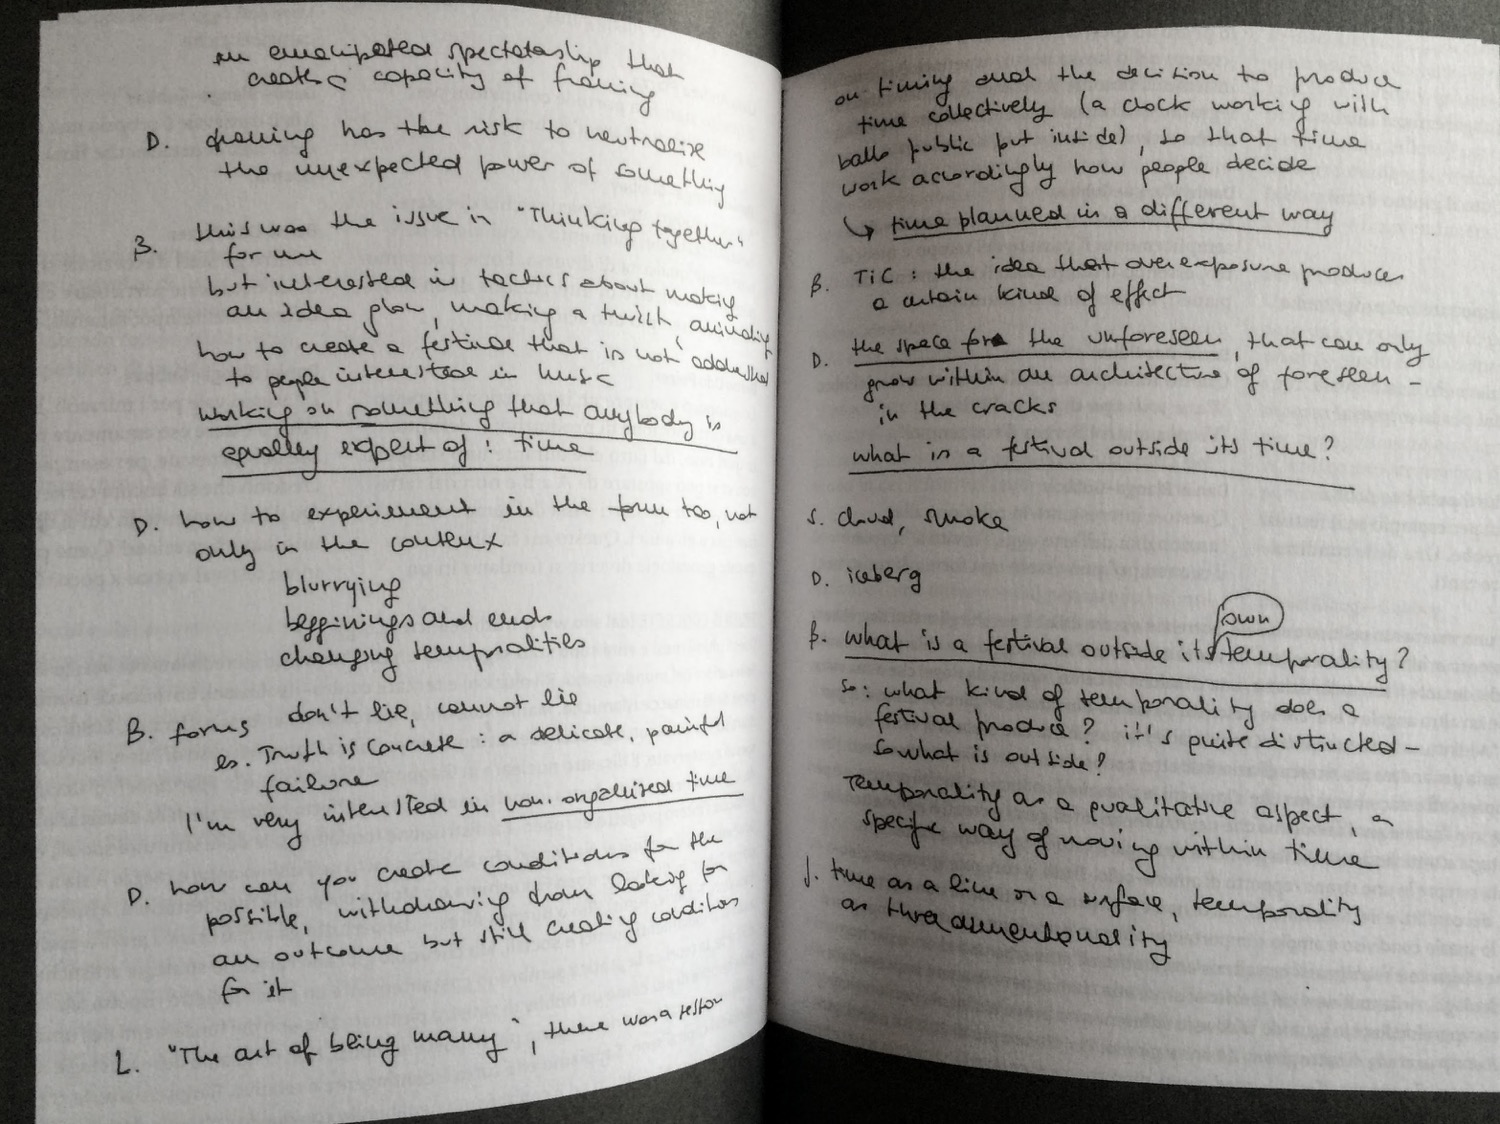 an emancipated spectatorship that
creates capacity of framing
D. framing has the risk to neutralize
the unexpected power of something
B. this was the issue in "Thinking together"
for me
but interested in tactics about making
an idea glow, making a twist, animating
how to create a festival that is not addressed
to people interested in music
working on something that anybody is
equally expert of: time
D. how to experiment in the form too, not
only in the content
blurrying
begginings and ends
changing temporalities
B. forms don't lie, cannot lie
es. Truth is concrete: a delicate, painful
failure
I'm very intersted in non-organized time
D. how can you create conditions for the
possible, withdrawing from looking for
an outcome but still creating conditions
for it
L. "The art of being many", there was a
on timing and the decision to produce
time collectively (a clock working with
balls public put inside), so that time
work accordingly how people decide
↳ time planned in a different way
B. TiC: the idea that overexposure produces
a certain kind of effect
D. the space for the unforeseen, that can only
grow within an architecture of foreseen -
in the cracks
what is a festival outside its time?
S. cloud, smoke
D. iceberg
own
B. what is a festival outside its temporality?
so: what kind of temporality does a
festival produce? it's quite distructed-
so what is outside?
Temporality as a qualitative aspect, a
specific way of moving within time
J. time as a line or a surface, temporality
as